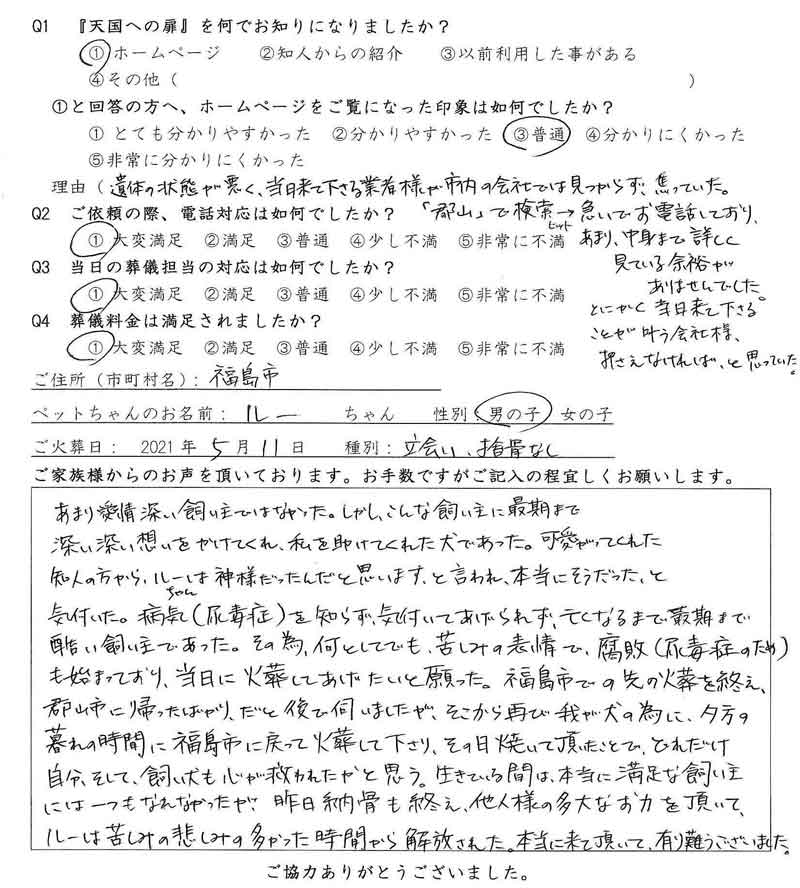 Q1 『天国への扉』を何でお知りになりましたか？
①ホームページ ②知人からの紹介 ③以前利用した事がある
④その他（ ）
①と回答の方へ、ホームページをご覧になった印象は如何でしたか？
① とても分かりやすかった ②分かりやすかった ③普通 ④分かりにくかった
⑤非常に分かりにくかった
理由（遺体の状態が悪く、当日来て下さる業者様が市内の会社では見つからず、焦っていた。
「郡山」で検索→急いでお電話しており、
ヒット
あまり、中身まで詳しく
見ている余裕が
ありませんでした。
とにかく当日来て下さる
ことが叶う会社様、
押さえなければ、と思っていた。
Q2 ご依頼の際、電話対応は如何でしたか？
① 大変満足 ②満足 ③普通 ④少し不満 ⑤非常に不満
Q3 当日の葬儀担当の対応は如何でしたか？
① 大変満足 ②満足 ③普通 ④少し不満 ⑤非常に不満
Q4 葬儀料金は満足されましたか？
① 大変満足 ②満足 ③普通 ④少し不満 ⑤非常に不満
ご住所（市町村名）：福島市
ペットちゃんのお名前：ルー ちゃん 性別：男の子 女の子
ご火葬日： 2021年 5月 11日 種別：立会い、拾骨なし
ご家族様からのお声を頂いております。お手数ですがご記入の程宜しくお願いします。
あまり愛情深い飼い主ではなかった。しかし、こんな飼い主に最期まで
深い深い想いをかけてくれ、私を助けてくれた犬であった。可愛がってくれた
知人の方から、ルーは神様だったんだと思います、と言われ、本当にそうだった、と
ちゃん
気付いた。病気（尿毒症）を知らず、気付いてあげられず、亡くなるまで最期まで
酷い飼い主であった。その為、何としてでも、苦しみの表情で、腐敗（尿毒症のため）
も始まっており、当日に火葬してあげたいと願った。福島市での先の火葬を終え、
郡山市に帰ったばかり、だと後で伺いましたが、そこから再び我が犬の為に、夕方の
暮れの時間に福島市に戻って火葬して下さり、その日焼いて頂いたことで、どれだけ
自分、そして、飼い犬も心が救われたかと思う。生きている間は、本当に満足な飼い主
には一つもなれなかったが、昨日納骨も終え、他人様の多大なお力を頂いて、
ルーは苦しみの悲しみの多かった時間から解放された。本当に来て頂いて、有り難うございました。
ご協力ありがとうございました。